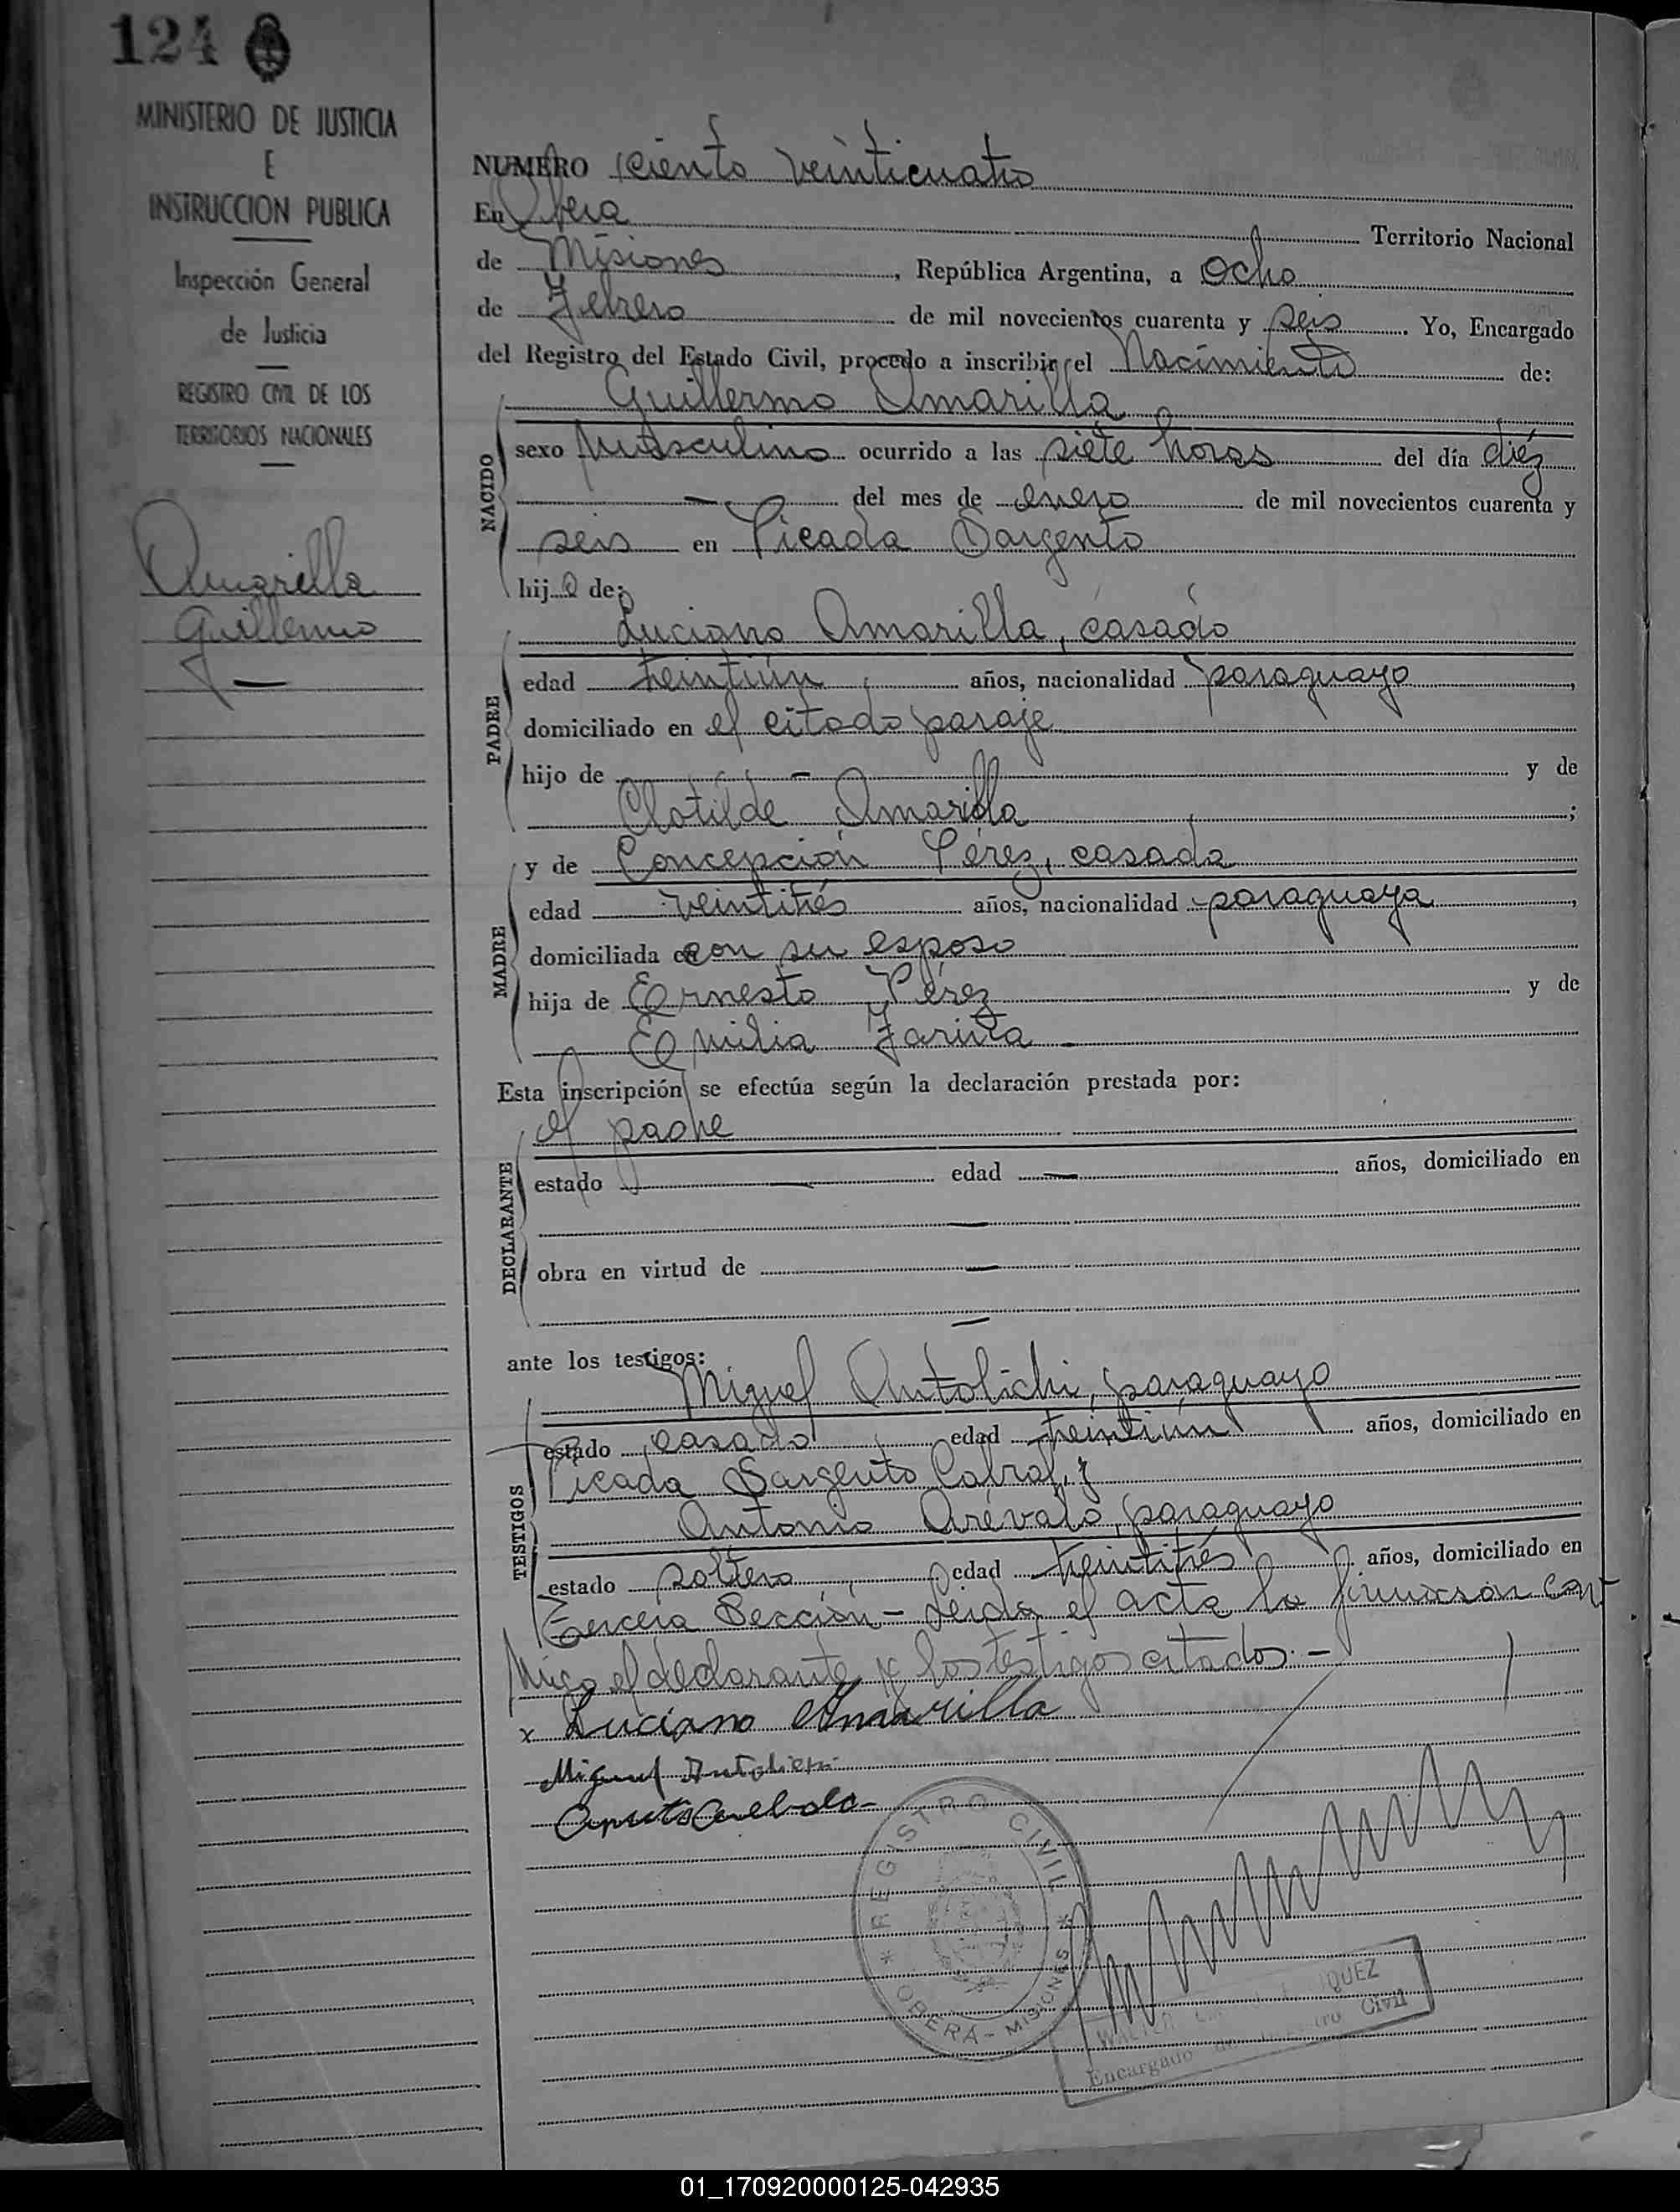 124
MINISTERIO DE JUSTICIA
E
INSTRUCCION PUBLICA
Inspección General
de Justicia
REGISTRO CIVIL DE LOS
TERRITORIOS NACIONALES
Amarilla
Guillermo
NUMERO ciento veinticuatro
En Obera Territorio Nacional
de Misiones, República Argentina, a Ocho
de Febrero de mil novecientos cuarenta y seis. Yo, Encargado
del Registro del Estado Civil, procedo a inscribir el Nacimiento de:
Guillermo Amarilla
NACIDO
sexo Masculino ocurrido a las siete horas del día diéz
— del mes de enero de mil novecientos cuarenta y
seis en Picada Sargento
hijo de:
Luciano Amarilla, casado
PADRE
edad treintiún años, nacionalidad paraguayo,
domiciliado en el citado paraje
hijo de — y de
Clotilde Amarilla;
y de Concepción Pérez, casada
MADRE
edad veintitrés años, nacionalidad paraguaya,
domiciliada con su esposo
hija de Ernesto Pérez y de
Emilia Fariña -
Esta inscripción se efectúa según la declaración prestada por:
el padre
DECLARANTE
estado — edad — años, domiciliado en
—
obra en virtud de —
—
ante los testigos:
Miguel Antolichi, paraguayo
TESTIGOS
estado casado edad treintiún años, domiciliado en
Picada Sargento Cabral, y
Antonio Arévalo, paraguayo
estado soltero edad treintitrés años, domiciliado en
Tercera Sección - Leida el acta la firmaron con-
migo el declarante y los testigos citados. -
x Luciano Amarilla
Miguel
REGISTRO CIVIL
OBERA - MISIONES
WALTER QUEZ
Encargado Civil
01_170920000125-042935